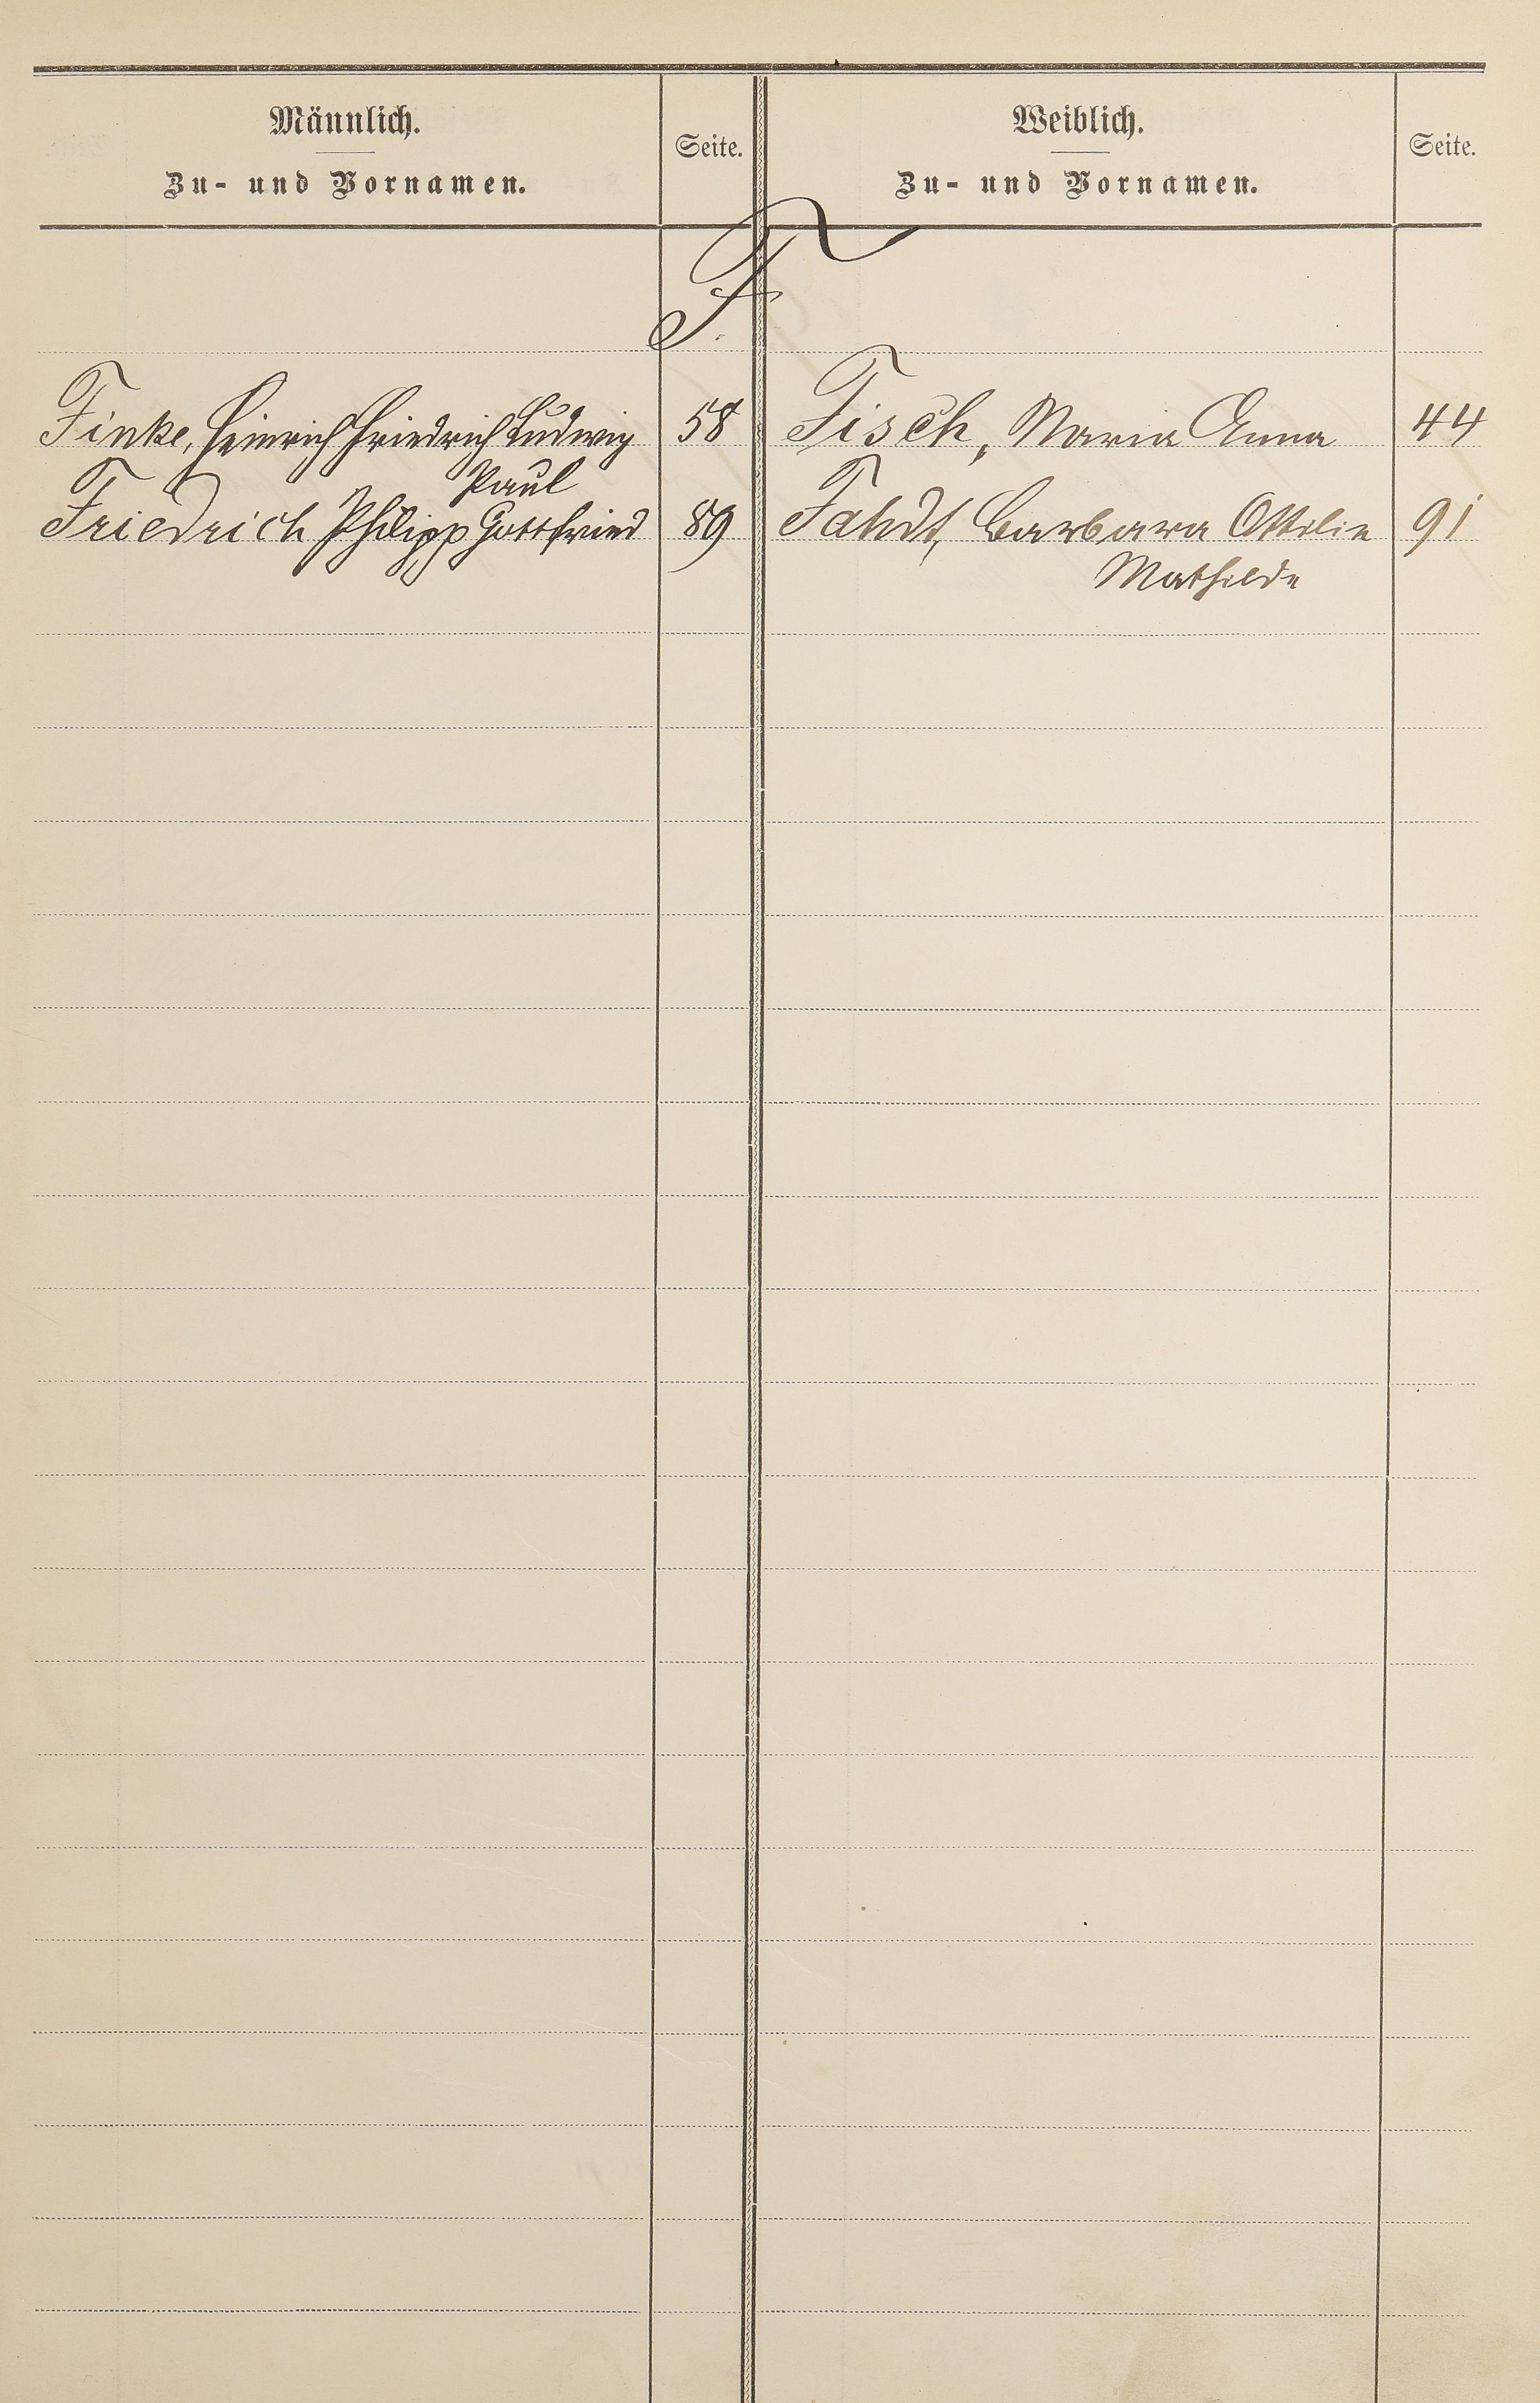 Männlich.
Zu- und Vornamen.
Seite.
Weiblich.
Zu- und Vornamen.
Seite.
F.
Finke, Heinrich Friedrich Ludwig 58
Fisch, Maria Anna 44
Paul
Friedrich Philipp Gottfried 89
Fahdt, Barbara Ottilie 91
Mathilde